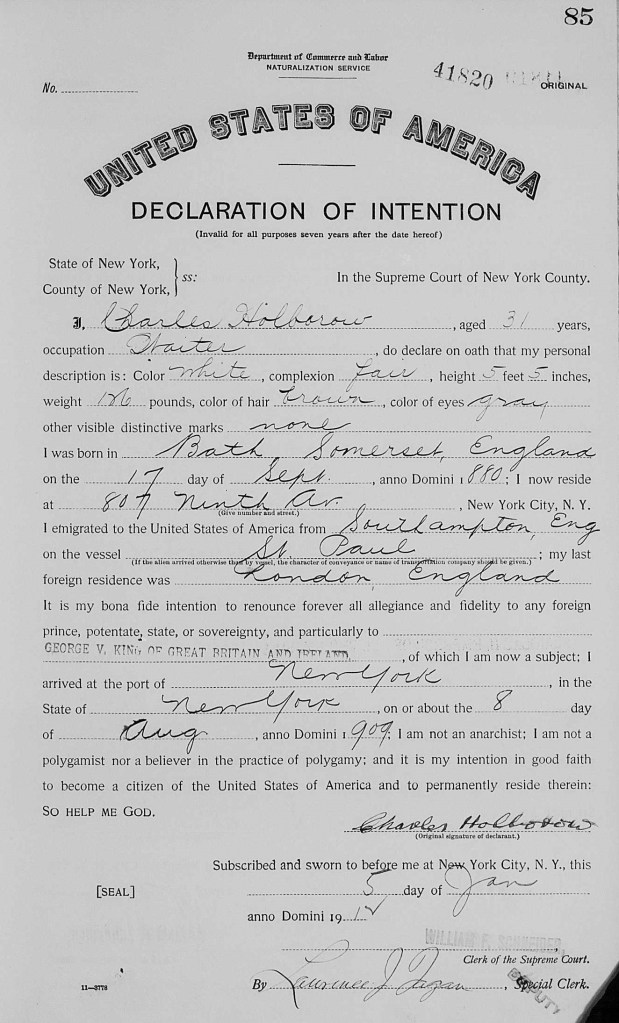 85
Department of Commerce and Labor
NATURALIZATION SERVICE
41820
No.
ORIGINAL
UNITED STATES OF AMERICA
DECLARATION OF INTENTION
(Invalid for all purposes seven years after the date hereof)
State of New York,
County of New York,
ss:
In the Supreme Court of New York County.
I, Charles Holborow, aged 31 years,
occupation Waiter, do declare on oath that my personal
description is: Color White, complexion fair, height 5 feet 5 inches,
weight 126 pounds, color of hair brown, color of eyes gray
other visible distinctive marks none
I was born in Bath, Somerset, England
on the 17 day of Sept., anno Domini 1880; I now reside
at 807 Ninth Av., New York City, N. Y.
(Give number and street.)
I emigrated to the United States of America from Southampton, Eng
on the vessel St. Paul; my last
(If the alien arrived otherwise than by vessel, the character of conveyance or name of transportation company should be given.)
foreign residence was London, England
It is my bona fide intention to renounce forever all allegiance and fidelity to any foreign
prince, potentate, state, or sovereignty, and particularly to
GEORGE V, KING OF GREAT BRITAIN AND IRELAND, of which I am now a subject; I
arrived at the port of New York, in the
State of New York, on or about the 8 day
of Aug, anno Domini 1909: I am not an anarchist; I am not a
polygamist nor a believer in the practice of polygamy; and it is my intention in good faith
to become a citizen of the United States of America and to permanently reside therein:
SO HELP ME GOD.
Charles Holborow
(Original signature of declarant.)
Subscribed and sworn to before me at New York City, N. Y., this
[SEAL]
5 day of Jan
anno Domini 1912
WILLIAM F. SCHNEIDER,
Clerk of the Supreme Court.
By Laurence J. , Special Clerk.
DEPUTY
11—3778